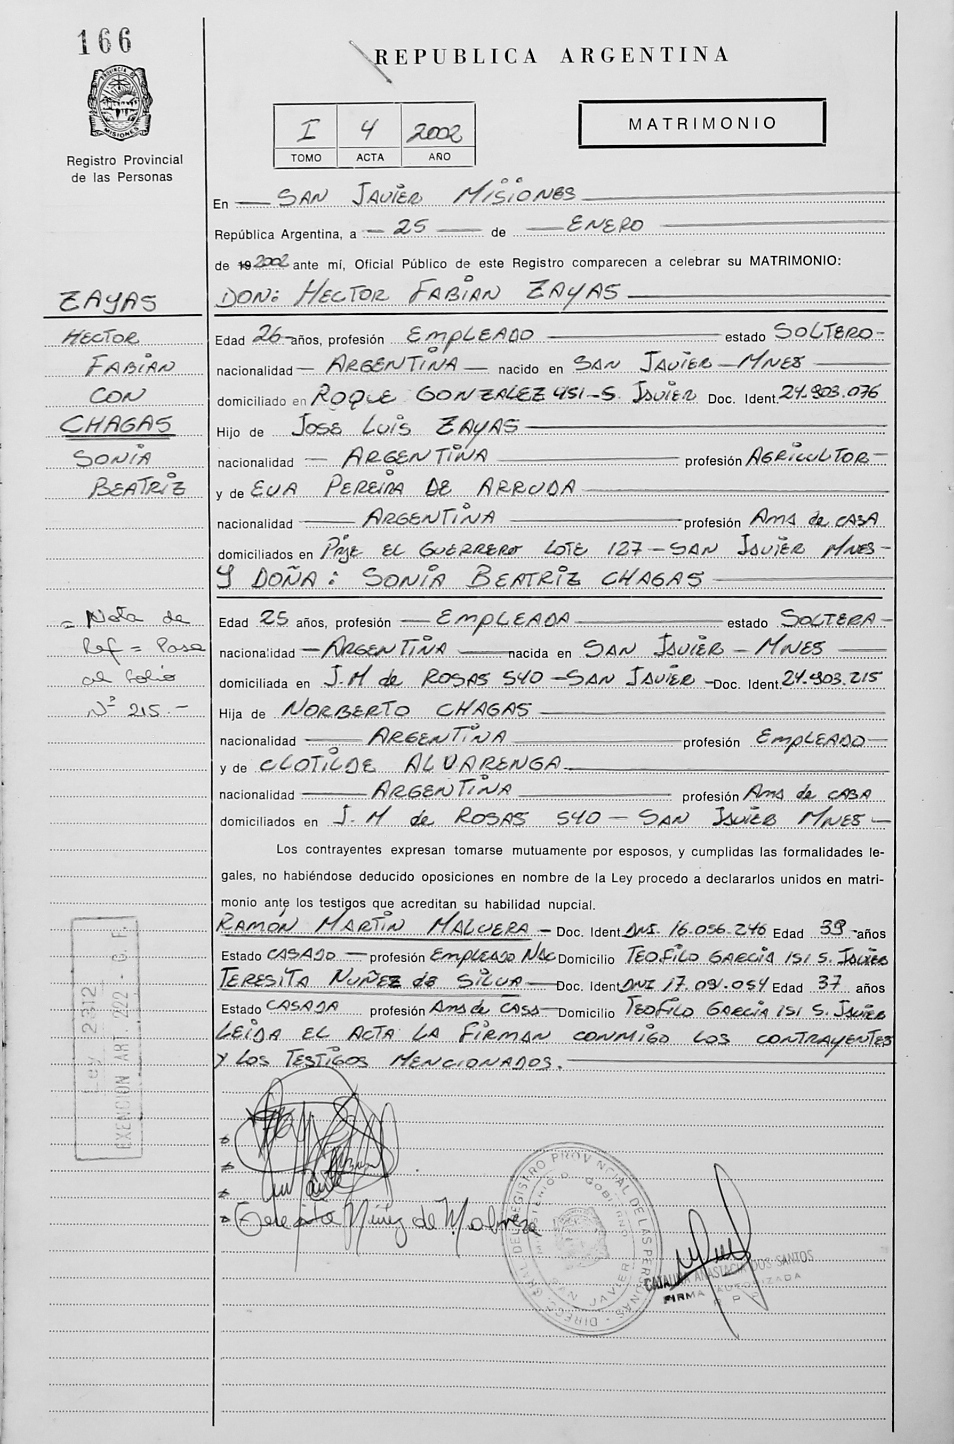 166
REPUBLICA ARGENTINA
PROVINCIA DE MISIONES
Registro Provincial
de las Personas
I 4 2002
TOMO ACTA AÑO
MATRIMONIO
En SAN JAVIER MISIONES
República Argentina, a 25 de ENERO
de 19 2002 ante mí, Oficial Público de este Registro comparecen a celebrar su MATRIMONIO:
DON: HECTOR FABIAN ZAYAS
Edad 26 años, profesión EMPLEADO estado SOLTERO
nacionalidad ARGENTINA nacido en SAN JAVIER - MNES
domiciliado en ROQUE GONZALEZ 451 - S. JAVIER Doc. Ident. 24.903.076
Hijo de JOSE LUIS ZAYAS
nacionalidad ARGENTINA profesión AGRICULTOR
y de EVA PEREIRA DE ARRUDA
nacionalidad ARGENTINA profesión AMA de CASA
domiciliados en Pje EL GUERRERO LOTE 127 - SAN JAVIER MNES -
Y DOÑA: SONIA BEATRIZ CHAGAS
Edad 25 años, profesión EMPLEADA estado SOLTERA
nacionalidad ARGENTINA nacida en SAN JAVIER - MNES
domiciliada en J.M de ROSAS 540 - SAN JAVIER - Doc. Ident. 24.903.215
Hija de NORBERTO CHAGAS
nacionalidad ARGENTINA profesión EMPLEADO
y de CLOTILDE ALVARENGA
nacionalidad ARGENTINA profesión AMA de CASA
domiciliados en J. M de ROSAS 540 - SAN JAVIER MNES -
Los contrayentes expresan tomarse mutuamente por esposos, y cumplidas las formalidades le-
gales, no habiéndose deducido oposiciones en nombre de la Ley procedo a declararlos unidos en matri-
monio ante los testigos que acreditan su habilidad nupcial.
RAMÓN MARTIN MALVERA - Doc. Ident DNI 16.056.246 Edad 39 años
Estado CASADO profesión EMPLEADO NAC Domicilio TEOFILO GARCIA 151 S. JAVIER
TERESITA NUÑEZ de SILVA Doc. Ident DNI 17.091.054 Edad 37 años
Estado CASADA profesión AMA de CASA Domicilio TEOFILO GARCIA 151 S. JAVIER
LEIDA EL ACTA LA FIRMAN CONMIGO LOS CONTRAYENTES
Y LOS TESTIGOS MENCIONADOS.
ZAYAS
HECTOR
FABIAN
CON
CHAGAS
SONIA
BEATRIZ
= Nota de
Ref = Pasa
al folio
Nº 215.-
Ley 2312
EXENCION ART. 222 - C. F.
Teresita Núñez de
DIREC. GRAL. DEL REGISTRO PROVINCIAL DE LAS PERSONAS
MINISTERIO D. GOBIERNO
SAN JAVIER
CATALINA ANASTACIA DOS SANTOS
FIRMA AUTORIZADA
R P P